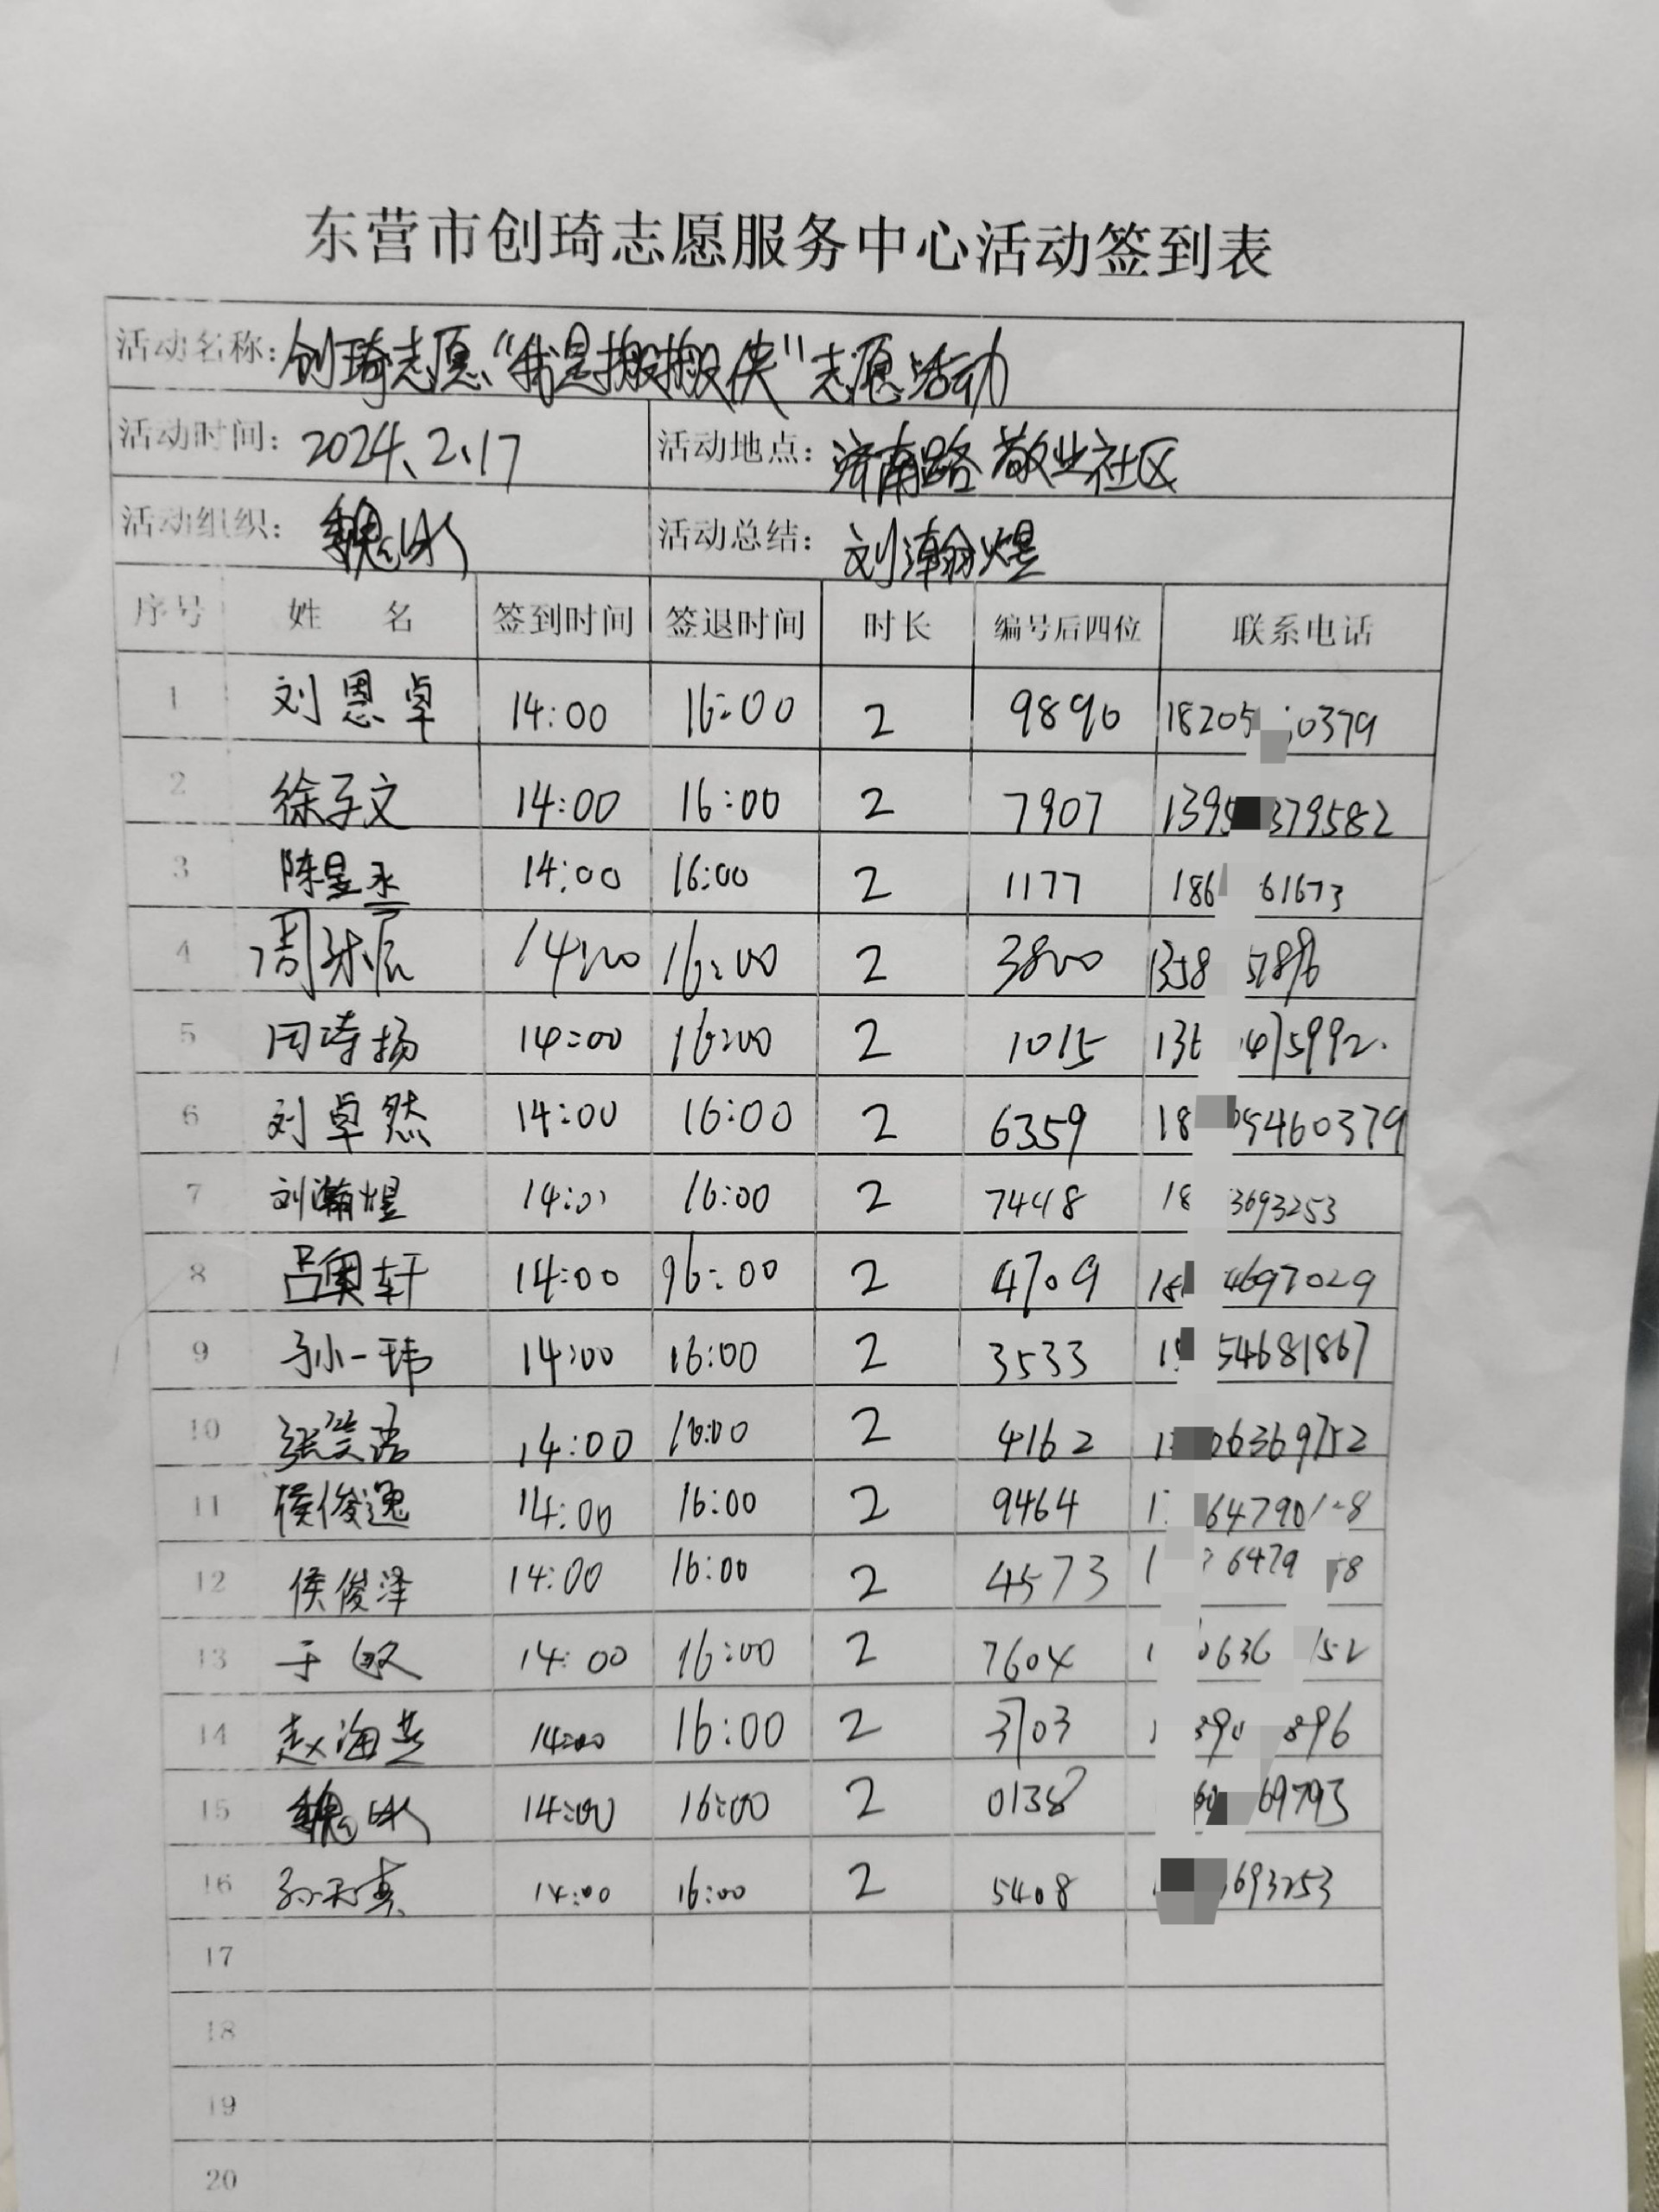 东营市创琦志愿服务中心活动签到表
活动名称：创琦志愿“我是搬搬侠”志愿活动
活动时间：2024.2.17 活动地点：济南路敬业社区
活动组织：魏冰 活动总结：刘瀚煜
序号 姓名 签到时间 签退时间 时长 编号后四位 联系电话
1 刘恩卓 14:00 16:00 2 9890 18205 0379
2 徐子文 14:00 16:00 2 7907 1395 379582
3 陈昱丞 14:00 16:00 2 1177 186 61673
4 14:00 16:00 2 3800 1358
5 14:00 16:00 2 1015 5992.
6 刘卓然 14:00 16:00 2 6359 18 5460379
7 刘瀚煜 14:0 16:00 2 7448 18 3693253
8 吕奥轩 14:00 16:00 2 4709 18 4697029
9 孙一玮 14:00 16:00 2 3533 1 54681867
10 张笑语 14:00 16:00 2 4162 1 06369752
11 侯俊逸 14:00 16:00 2 9464 1 64790 8
12 侯俊泽 14:00 16:00 2 4573 1 6479 8
13 于 14:00 16:00 2 7604 1 0636 152
14 赵海燕 14:00 16:00 2 3703 390 896
15 魏冰 14:00 16:00 2 0138 69793
16 14:00 16:00 2 5408 693253
17
18
19
20